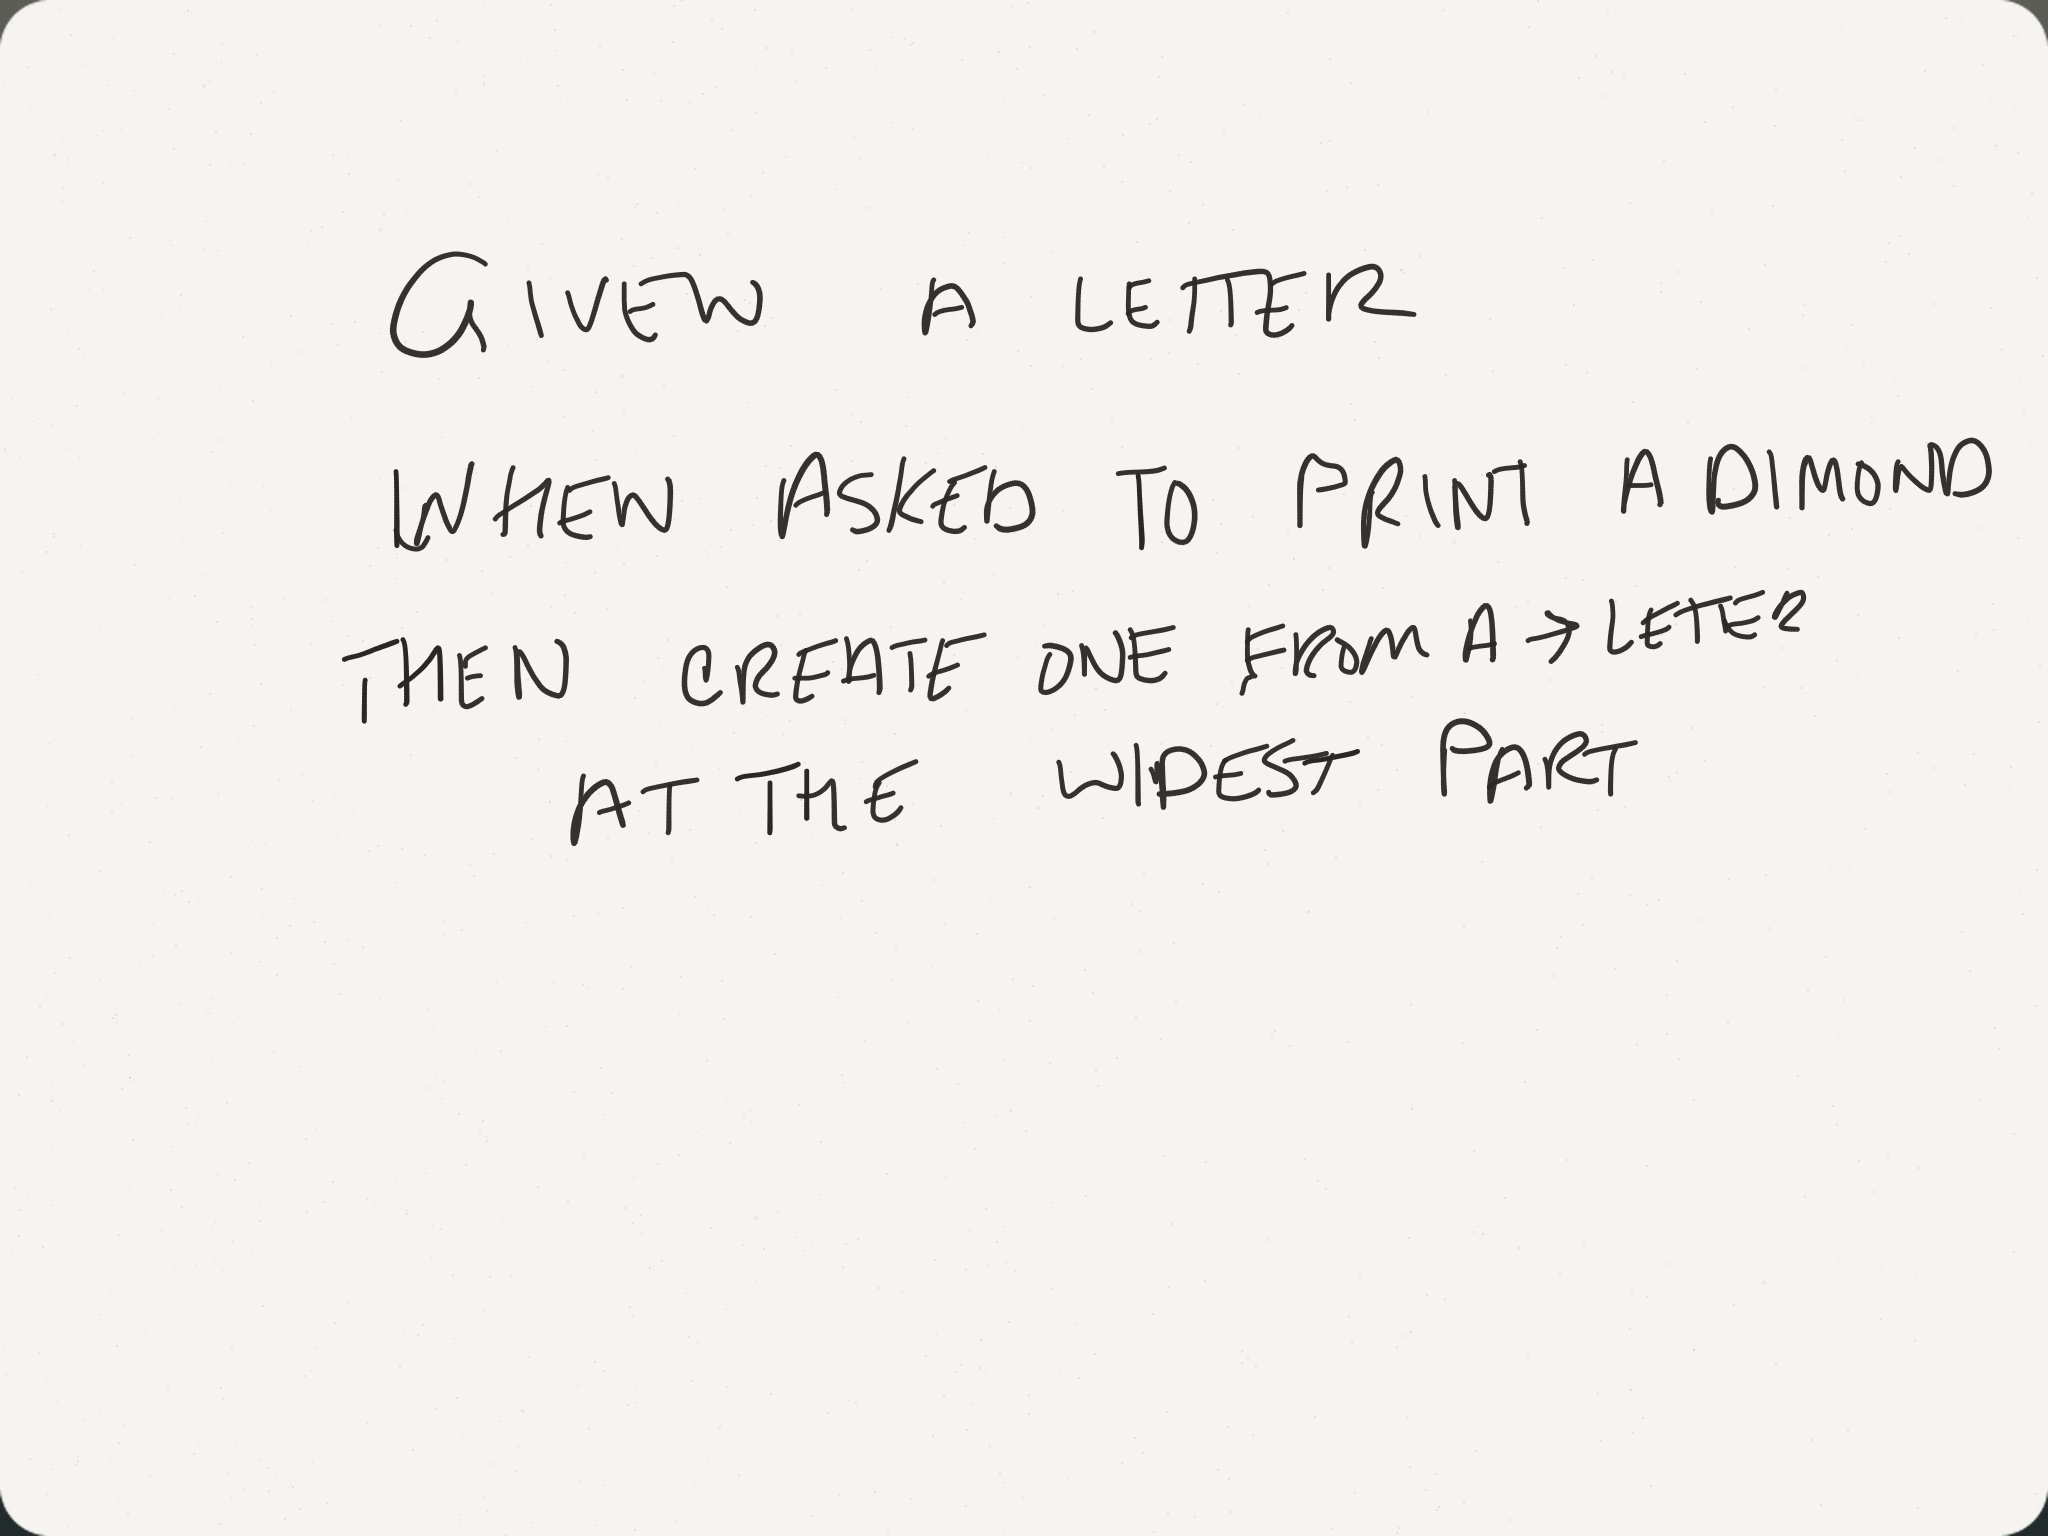 GIVEN A LETTER
WHEN ASKED TO PRINT A DIMOND
THEN CREATE ONE FROM A → LETTER
AT THE WIDEST PART